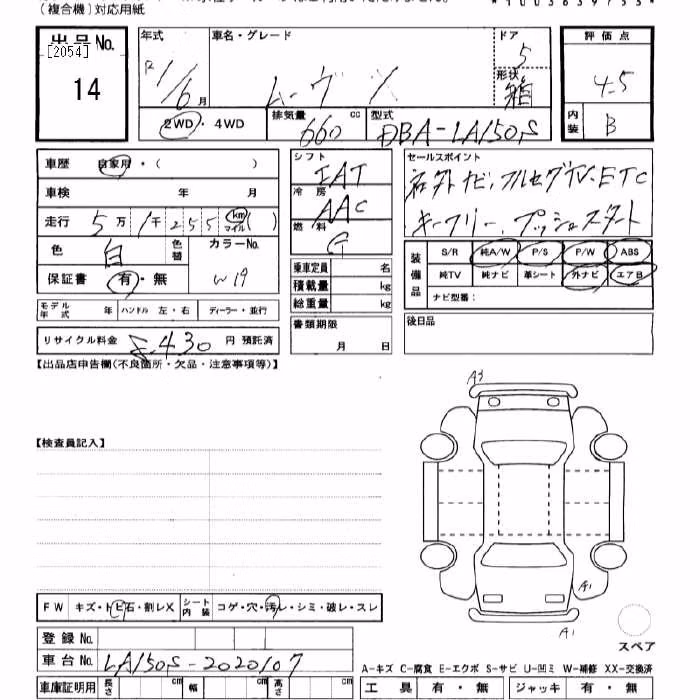 (複合機)対応用紙
出品No.
[2054]
14
年式
R1/6月
車名・グレード
ムーヴ X
ドア
5
形状
箱
評価点
4.5
内装
B
2WD・4WD
排気量
660 cc
型式
DBA-LA150S
車歴 自家用・( )
車検 年 月
走行 5万1千255 km マイル ( )
色 白
色替
カラーNo.
W19
保証書 有・無
モデル年式 年 ハンドル 左・右 ディーラー・並行
リサイクル料金 430 円 預託済
シフト
IAT
冷房
AAC
燃料
G
乗車定員 名
積載量 kg
総重量 kg
書類期限
月 日
セールスポイント
社外ナビ、フルセグTV・ETC
キーフリー、プッシュスタート
装備品
S/R 純A/W P/S P/W ABS
純TV 純ナビ 革シート 外ナビ エアB
ナビ型番:
後日品
【出品店申告欄(不良箇所・欠品・注意事項等)】
【検査員記入】
A3
A1
A1
スペア
FW キズ・トビ石・割レX シート内装 コゲ・穴・汚レ・シミ・破レ・スレ
登録No.
車台No. LA150S-2020107
車庫証明用 長さ cm 幅 cm 高さ cm
A-キズ C-腐食 E-エクボ S-サビ U-凹ミ W-補修 XX-交換済
工具 有・無 ジャッキ 有・無